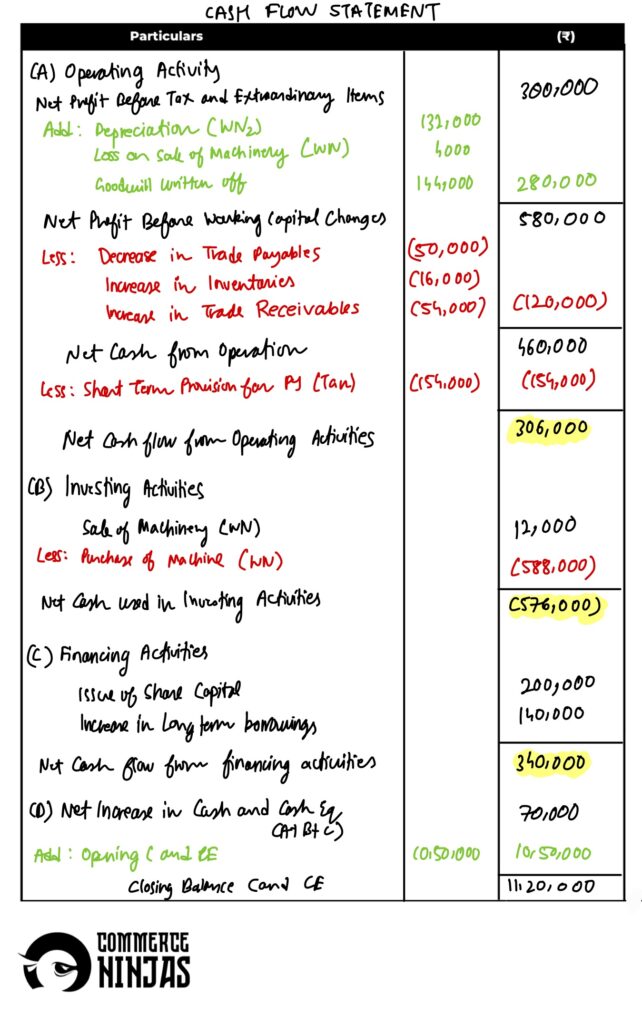 CASH FLOW STATEMENT
Particulars (₹)
(A) Operating Activity
Net Profit Before Tax and Extraordinary Items 300,000
Add: Depreciation (WN2) 132,000
Loss on Sale of Machinery (WN) 4000
Goodwill written off 144,000 280,000
Net Profit Before Working Capital Changes 580,000
Less: Decrease in Trade Payables (50,000)
Increase in Inventories (16,000)
Increase in Trade Receivables (54,000) (120,000)
Net Cash from Operation 460,000
Less: Short Term Provision for PY (Tax) (154,000) (154,000)
Net Cash flow from Operating Activities 306,000
(B) Investing Activities
Sale of Machinery (WN) 12,000
Less: Purchase of Machine (WN) (588,000)
Net Cash used in Investing Activities (576,000)
(C) Financing Activities
Issue of Share Capital 200,000
Increase in Long term borrowings 140,000
Net Cash flow from financing activities 340,000
(D) Net Increase in Cash and Cash Eq. 70,000
(A+B+C)
Add: Opening C and CE 10,50,000 10,50,000
Closing Balance C and CE 11,20,000
COMMERCE
NINJAS